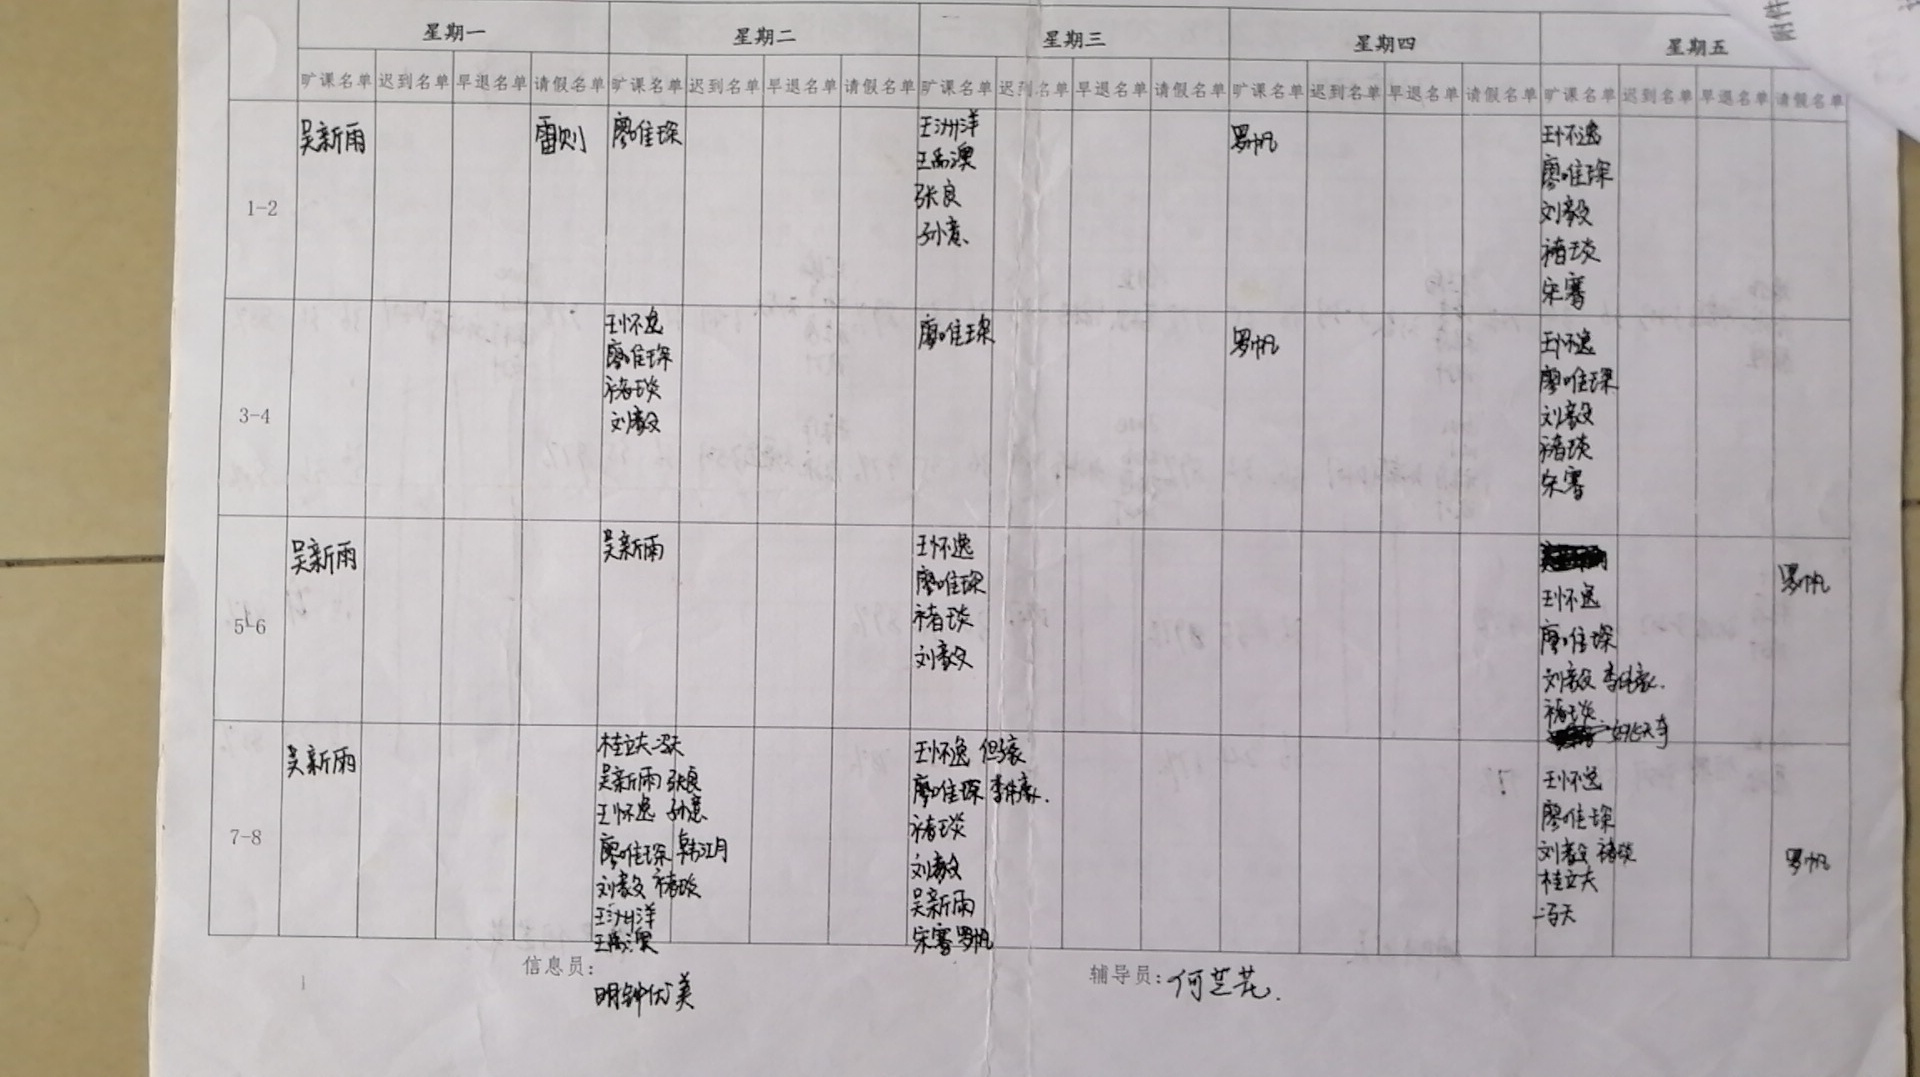 星期一 星期二 星期三 星期四 星期五
旷课名单 迟到名单 早退名单 请假名单 旷课名单 迟到名单 早退名单 请假名单 旷课名单 迟到名单 早退名单 请假名单 旷课名单 迟到名单 早退名单 请假名单 旷课名单 迟到名单 早退名单 请假名单
附件
1-2
吴新雨
雷则
廖唯琛
王洲洋
王禹澳
张良
孙意
罗帆
王怀逸
廖唯琛
刘毅
褚琰
宋骞
3-4
王怀逸
廖唯琛
褚琰
刘毅
廖唯琛
罗帆
王怀逸
廖唯琛
刘毅
褚琰
宋骞
5-6
吴新雨
吴新雨
王怀逸
廖唯琛
褚琰
刘毅
王怀逸
廖唯琛
刘毅 李伟豪
褚琰
罗帆
7-8
吴新雨
桂立夫 冯天
吴新雨 张良
王怀逸 孙意
廖唯琛 韩江月
刘毅 褚琰
王洲洋
王禹澳
王怀逸 但豪
廖唯琛 李伟豪
褚琰
刘毅
吴新雨
宋骞 罗帆
王怀逸
廖唯琛
刘毅 褚琰
桂立夫
冯天
罗帆
信息员:
明钟优美
辅导员: 何芝花